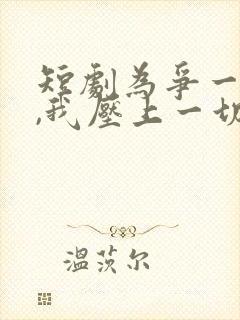 短劇為爭一
,我壓上一切
溫茨尔